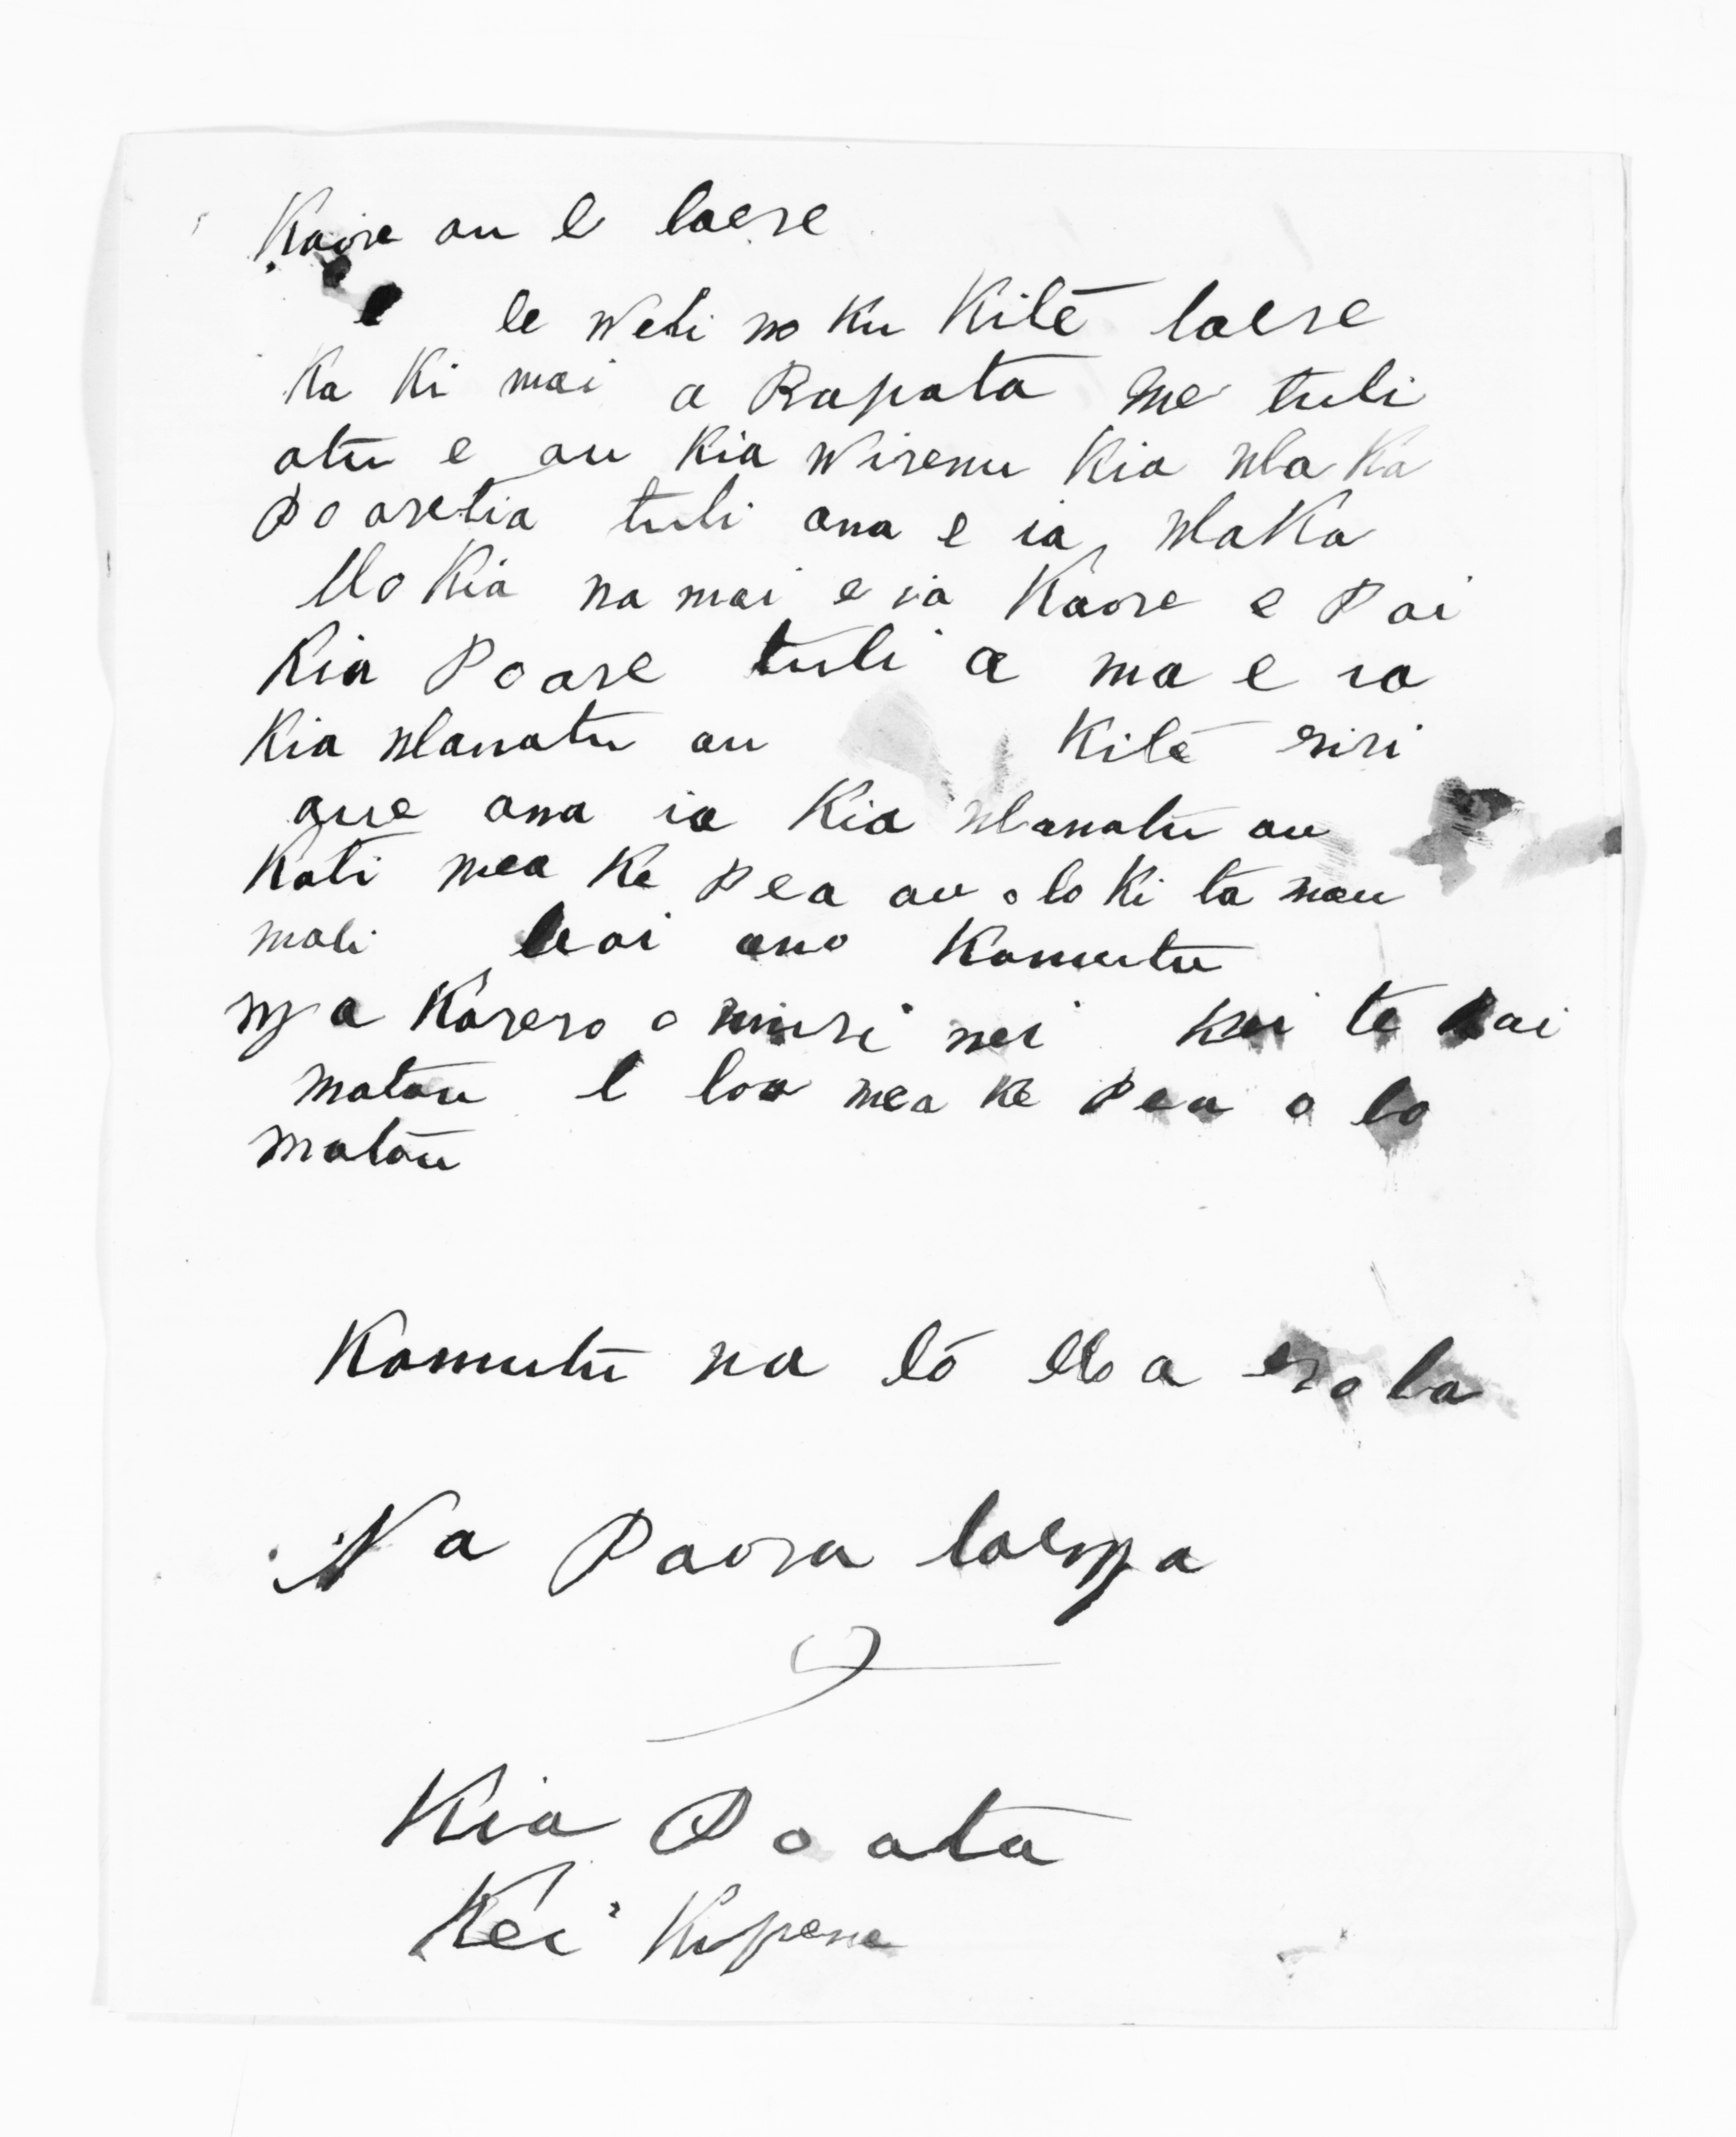 Kaore au e taere
te weti no ku Kite taere
Ka Ki mai a Rapata me tuti
atu e au Kia Wiremu Kia Waka
Poaretia tuti ana e ia, Waka
Ho Kia na mai e ia Kaore e Pai
Kia Poare tuti a ma e ia
Kia Wanatu au Kite riri
aue ana ia Kia Wanatu au
Kati mea Ke Pea au o to Ki ta mau
mati tai ano Kamutu
nga Korero o muri nei kei te tai
matau e toa mea Ke Pea o to
matau
Kamutu na to Hoa
Na Paora taenga
Kia Poata
Kei Kupene